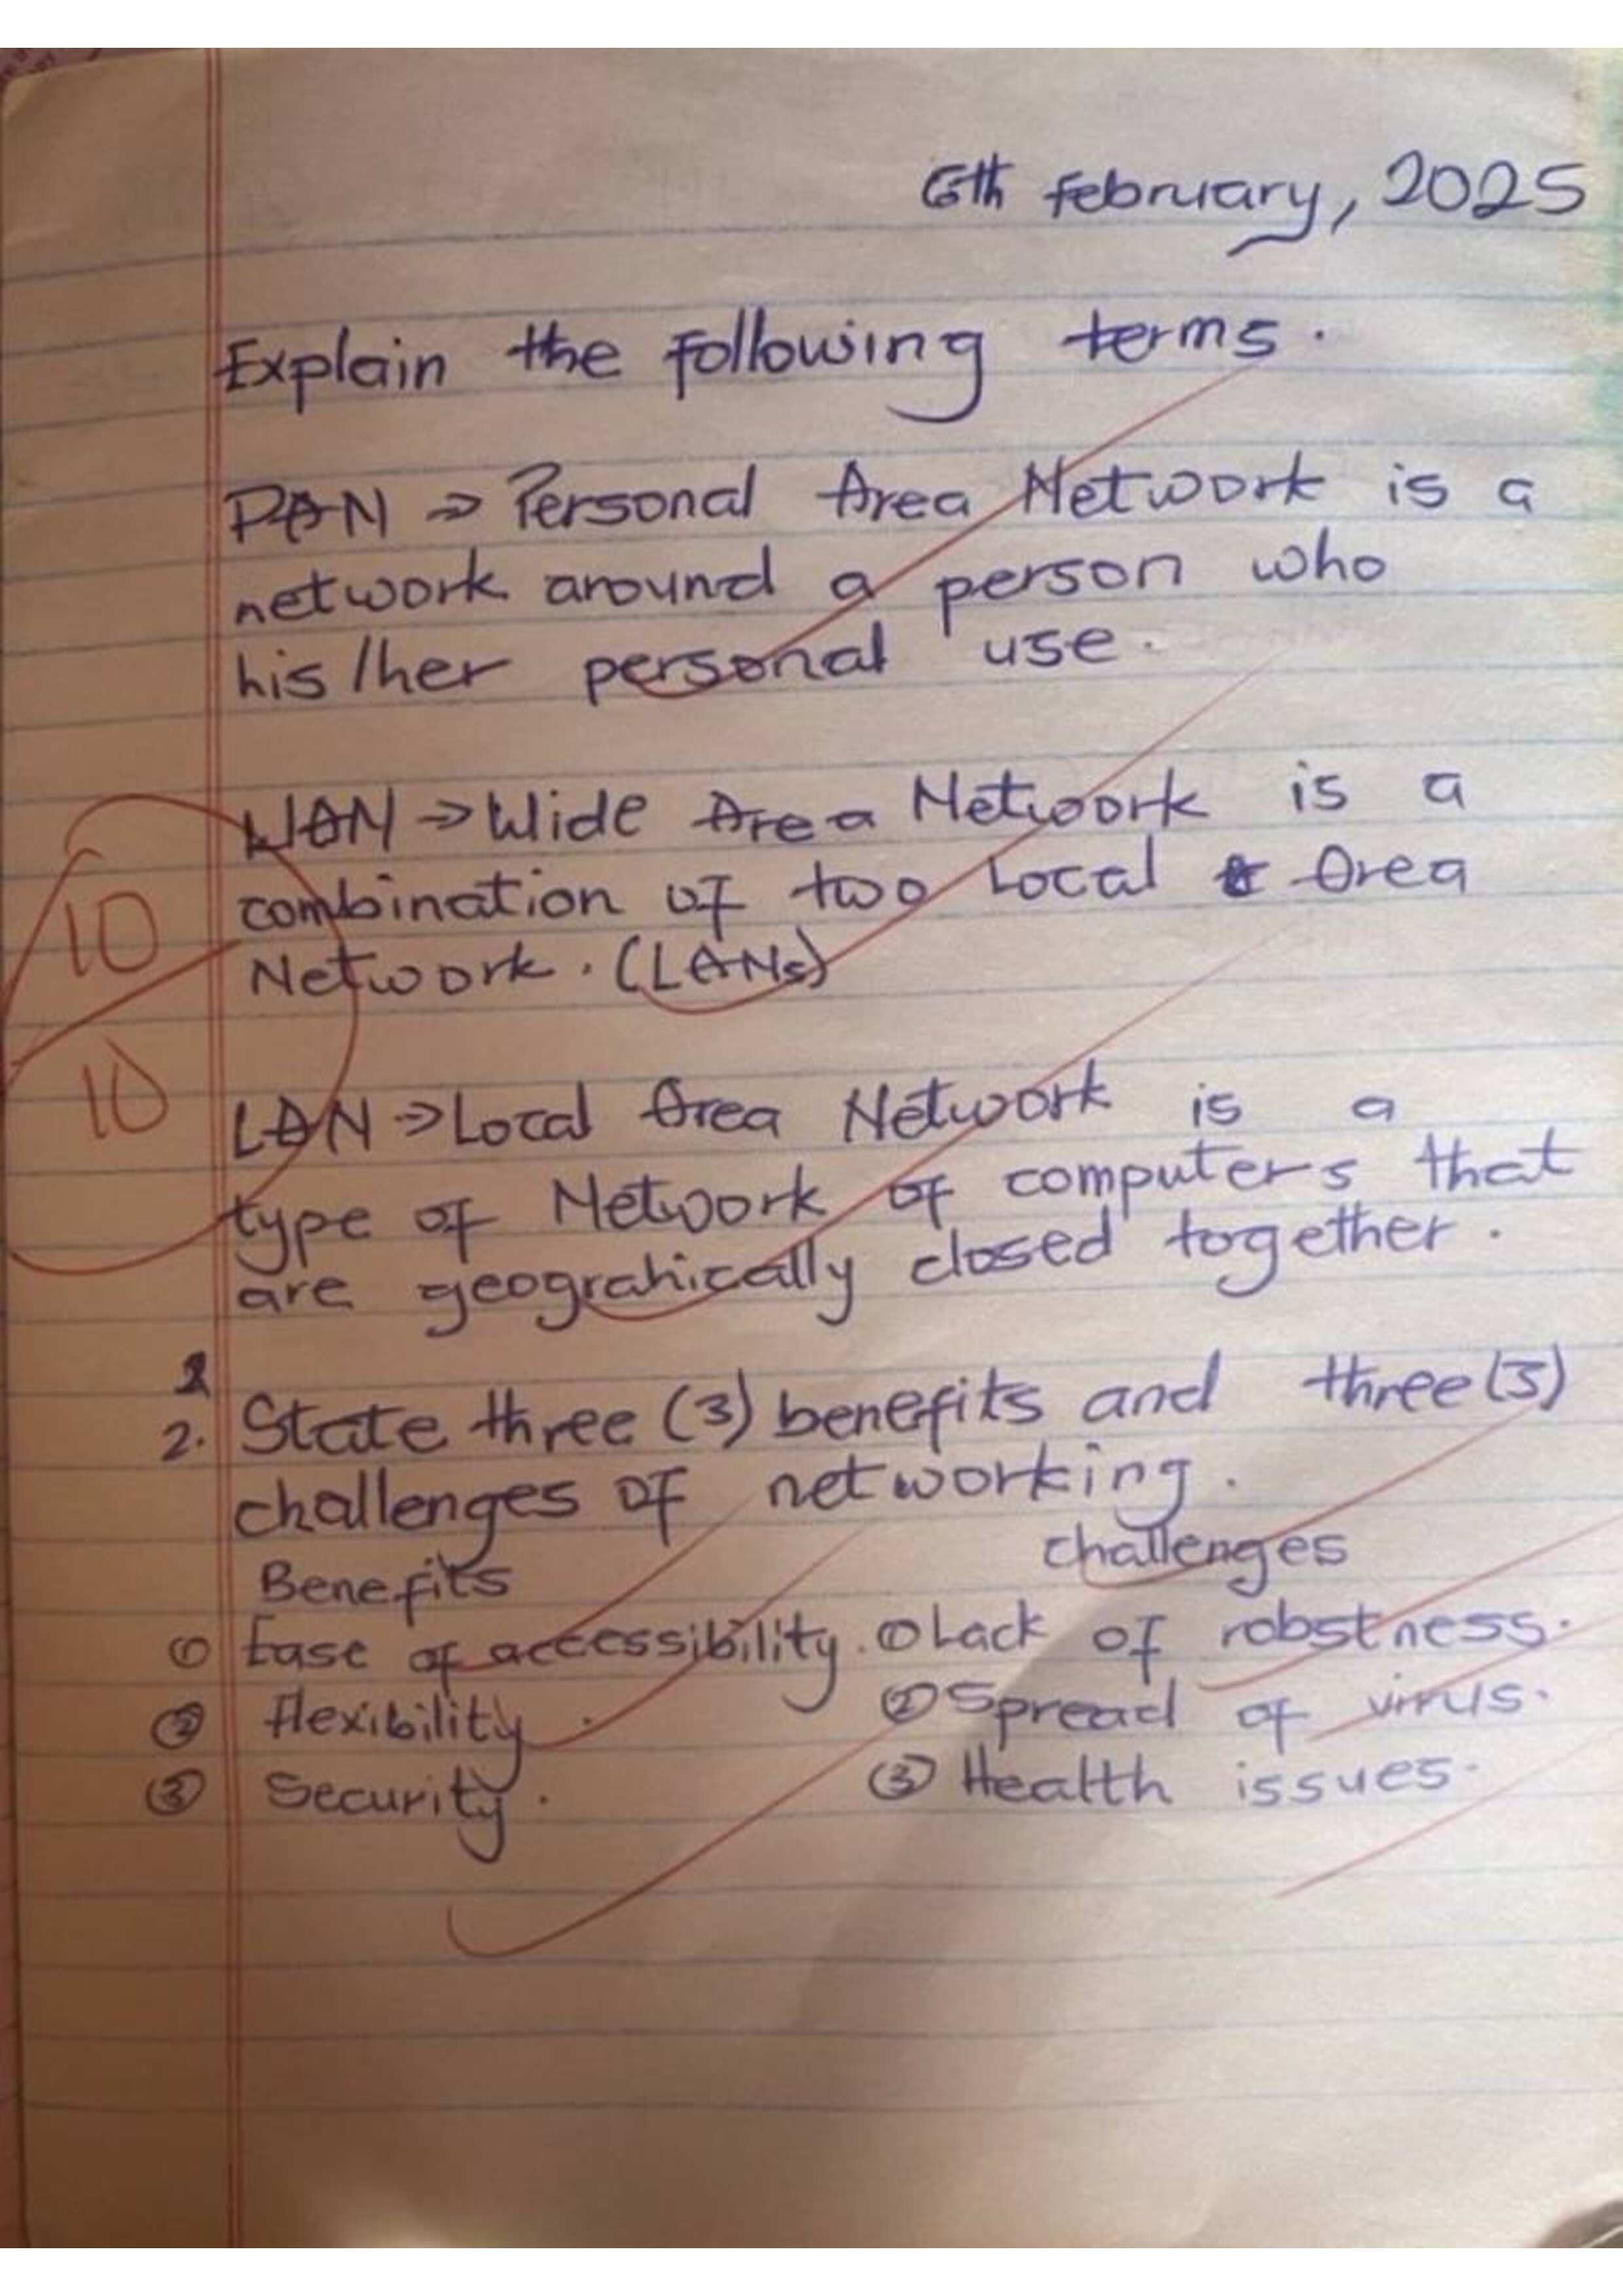 6th February, 2025
Explain the following terms.
PAN ⇒ Personal Area Network is a
network around a person who
his/her personal use.
WAN → Wide Area Network is a
combination of two Local Area
Network. (LANs)
10
10
LAN → Local Area Network is a
type of Network of computers that
are geograhically closed together.
2. State three (3) benefits and three (3)
challenges of networking.
Benefits challenges
① Ease of accessibility. ① Lack of robstness.
② flexibility. ② Spread of virus.
③ Security. ③ Health issues.